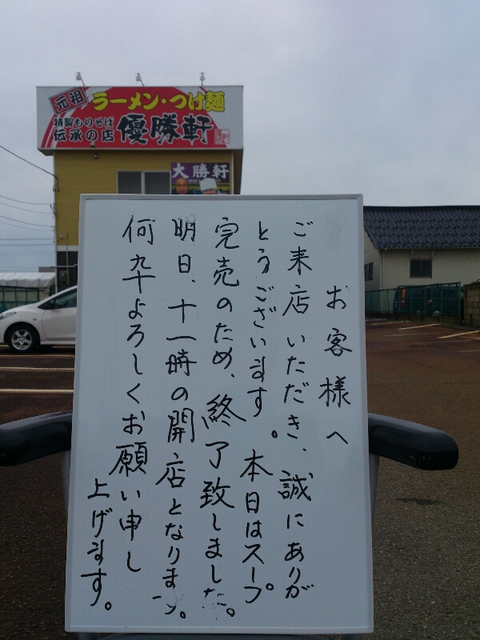 元祖
ラーメン・つけ麺
特製もりそば
伝承の店
優勝軒
大勝軒
お客様へ
ご来店いただき、誠にありが
とうございます。本日はスープ
完売のため、終了致しました。
明日、十一時の開店となります。
何卆よろしくお願い申し
上げます。